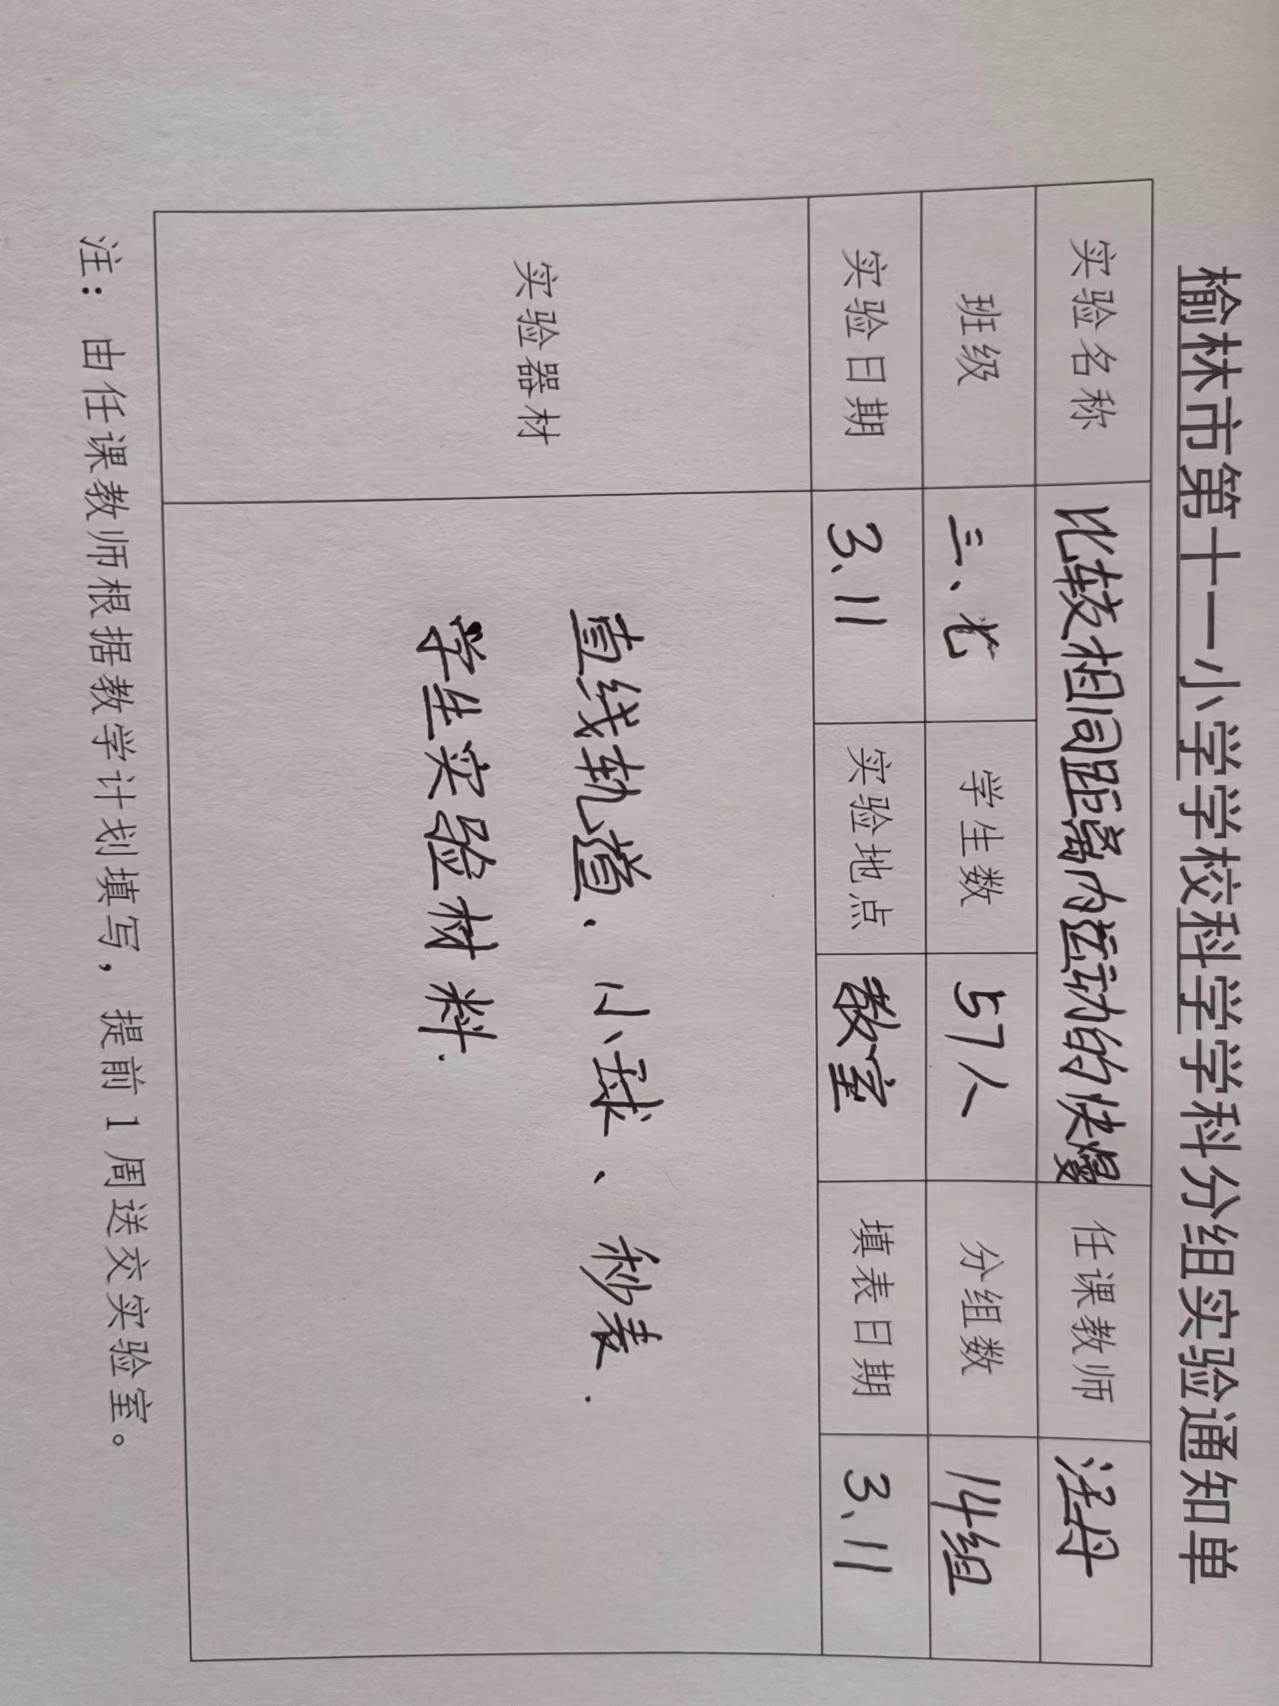 榆林市第十一小学学校科学学科分组实验通知单
实验名称 比较相同距离内运动的快慢 任课教师 汪丹
班级 三、 学生数 57人 分组数 14组
实验日期 3、11 实验地点 教室 填表日期 3、11
实验器材 直线轨道、小球、秒表.
学生实验材料.
注：由任课教师根据教学计划填写，提前1周送交实验室。